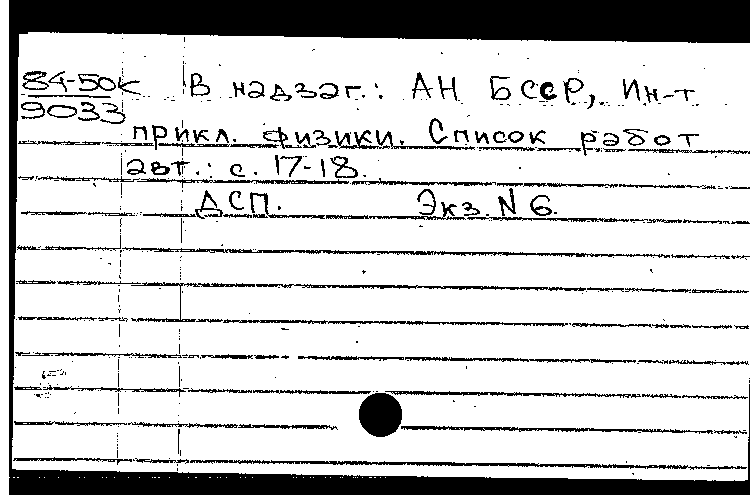 84-50к В надзаг.: АН БССР, Ин-т
9033
прикл. физики. Список работ
авт.: с. 17-18.
ДСП. Экз. N 6.